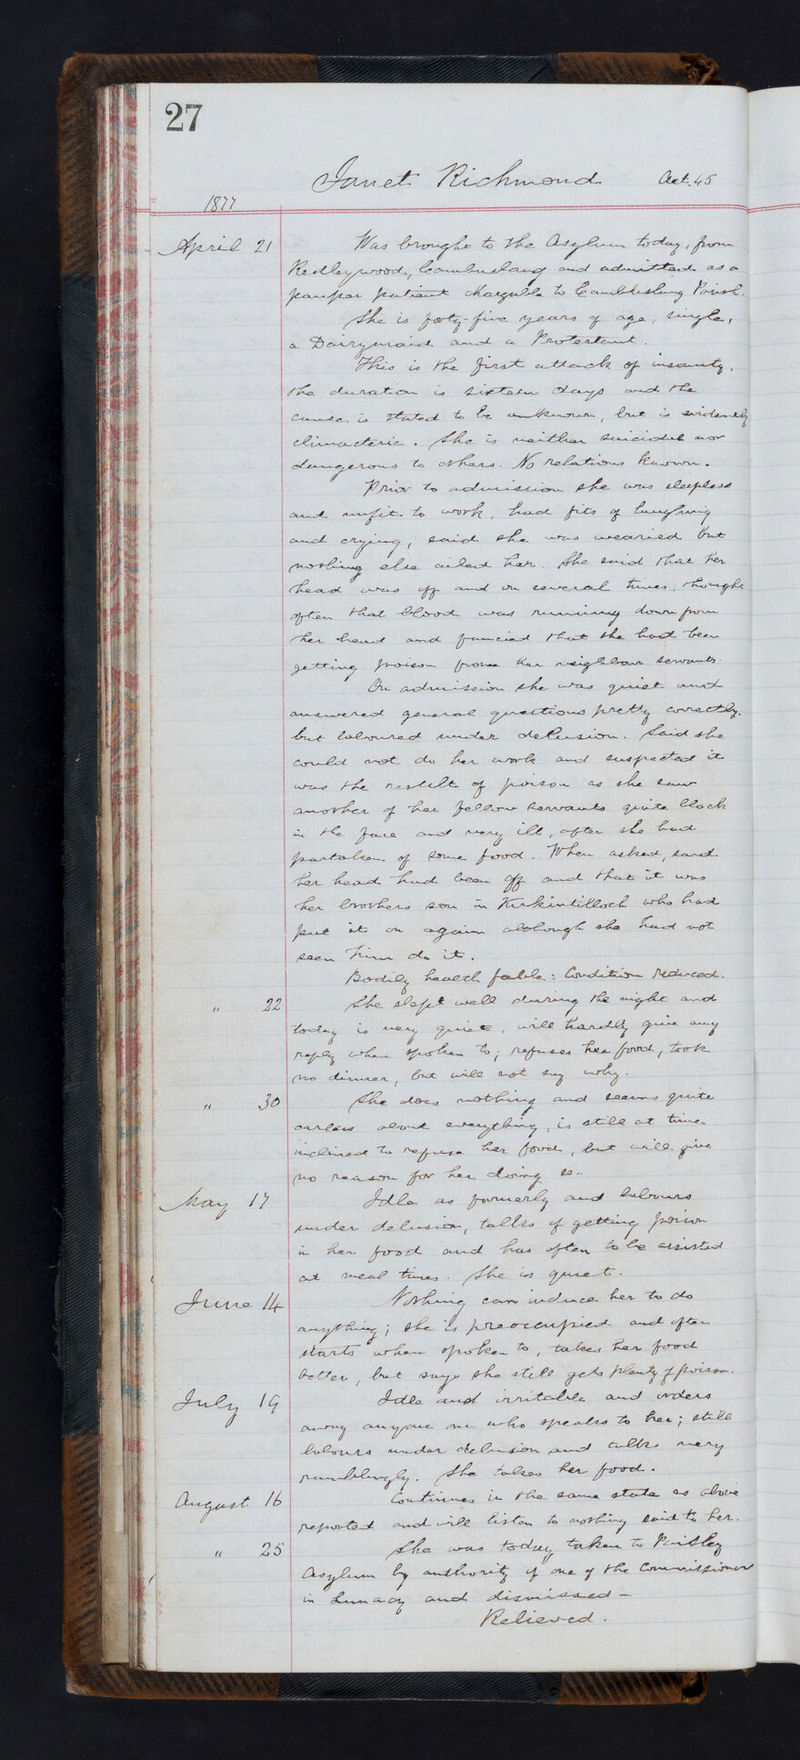 27
Janet Richmond Aet. 45
1877
April 21 Was brought to the Asylum today, from
Cambuslang and admitted as a
pauper patient chargeable to Parish.
She is forty-five years of age, single,
a Dairymaid and a Protestant.
This is the first attack of insanity,
the duration is sixteen days and the
cause is stated to be unknown, but is evidently
climacteric. She is neither suicidal nor
dangerous to others. No relations known.
Prior to admission she was sleepless
and unfit to work, had fits of laughing
and crying, said she was wearied but
nothing else ailed her. She said that her
head was off and on several times, thought
often that blood was running down from
her head and fancied that she had been
getting poison from her neighbour servants.
On admission she was quiet and
answered general questions pretty correctly,
but laboured under delusion. Said she
could not do her work and suspected it
was the result of poison as she saw
another of her fellow servants quite black
in the face and very ill, after she had
partaken of some food. When asked, said
her head had been off and that it was
her brothers son in Kirkintilloch who had
put it on again although she had not
seen him do it.
Bodily health feeble: Condition reduced.
" 22 She slept well during the night and
today is very quiet, will hardly give any
reply when spoken to; refuses her food, took
no dinner, but will not say why.
" 30 She does nothing and seems quite
careless about everything, is still at times
inclined to refuse her food, but will give
no reason for her doing so.
May 17 Idle as formerly and labours
under delusion, talks of getting poison
in her food and has often to be assisted
at meal times. She is quiet.
June 14 Nothing can induce her to do
anything; she is preoccupied and often
starts when spoken to, takes her food
better, but says she still gets plenty of poison.
July 19 Idle and irritable and orders
away anyone who speaks to her; still
labours under delusion and talks very
ramblingly. She takes her food.
August 16 Continues in the same state as above
reported and will listen to nothing said to her.
" 25 She was today taken to Paisley
Asylum by authority of one of the Commissioners
in Lunacy and dismissed –
Relieved.